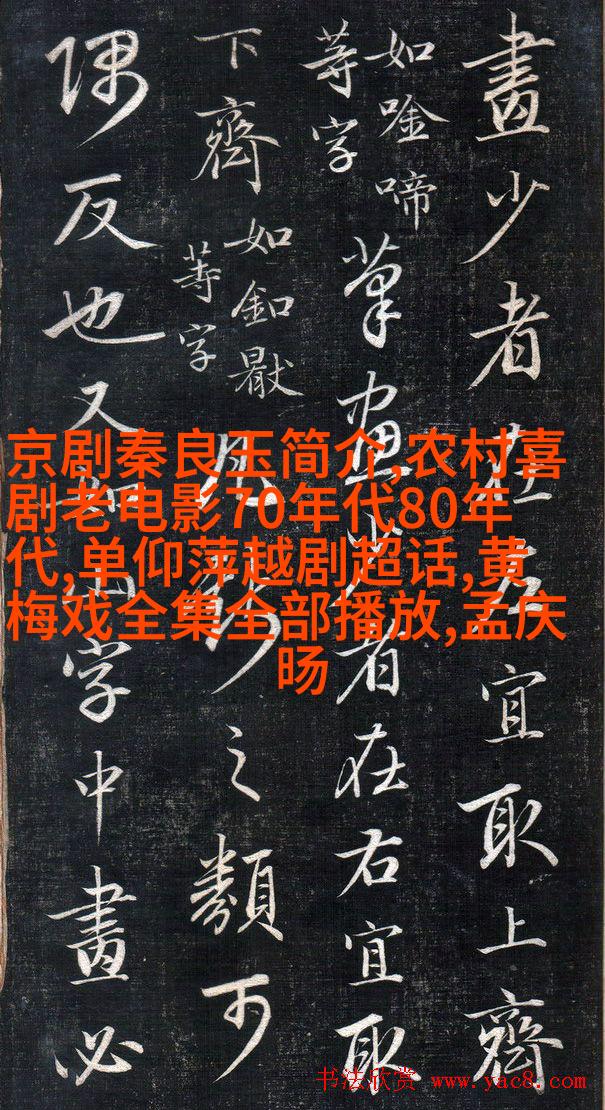 畫少者在左宜取上齊
如唫啼
等字
筆畫少者在右宜取
下齊
如釦
等字
之類可
隅反也又如字中畫必
京剧秦良玉简介,农村喜
剧老电影70年代80年
代,单仰萍越剧超话,黄
梅戏全集全部播放,孟庆
旸
书法欣赏 www.yac8.com